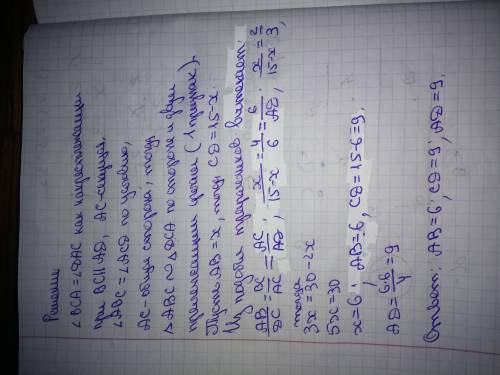 Решение
∠BCA = ∠DAC как накрестлежащии
при BC ∥ AD, AC-секущая.
∠ABC = ∠ACD по условию,
AC-общая сторона, тогда
△ABC ∾ △DCA по стороне и двум
прилежащим углам (1 признак).
Пусть AB = x, тогда CD = 15-x.
Из подобия треугольников вытекает:
AB/DC = BC/AC = AC/AD, x/15-x = 4/6 = 6/AD, x/15-x = 2/3,
тогда
3x = 30-2x
5x = 30
x = 6, AB = 6, CD = 15-6 = 9,
AD = 6·6/4 = 9
Ответ: AB = 6, CD = 9, AD = 9.